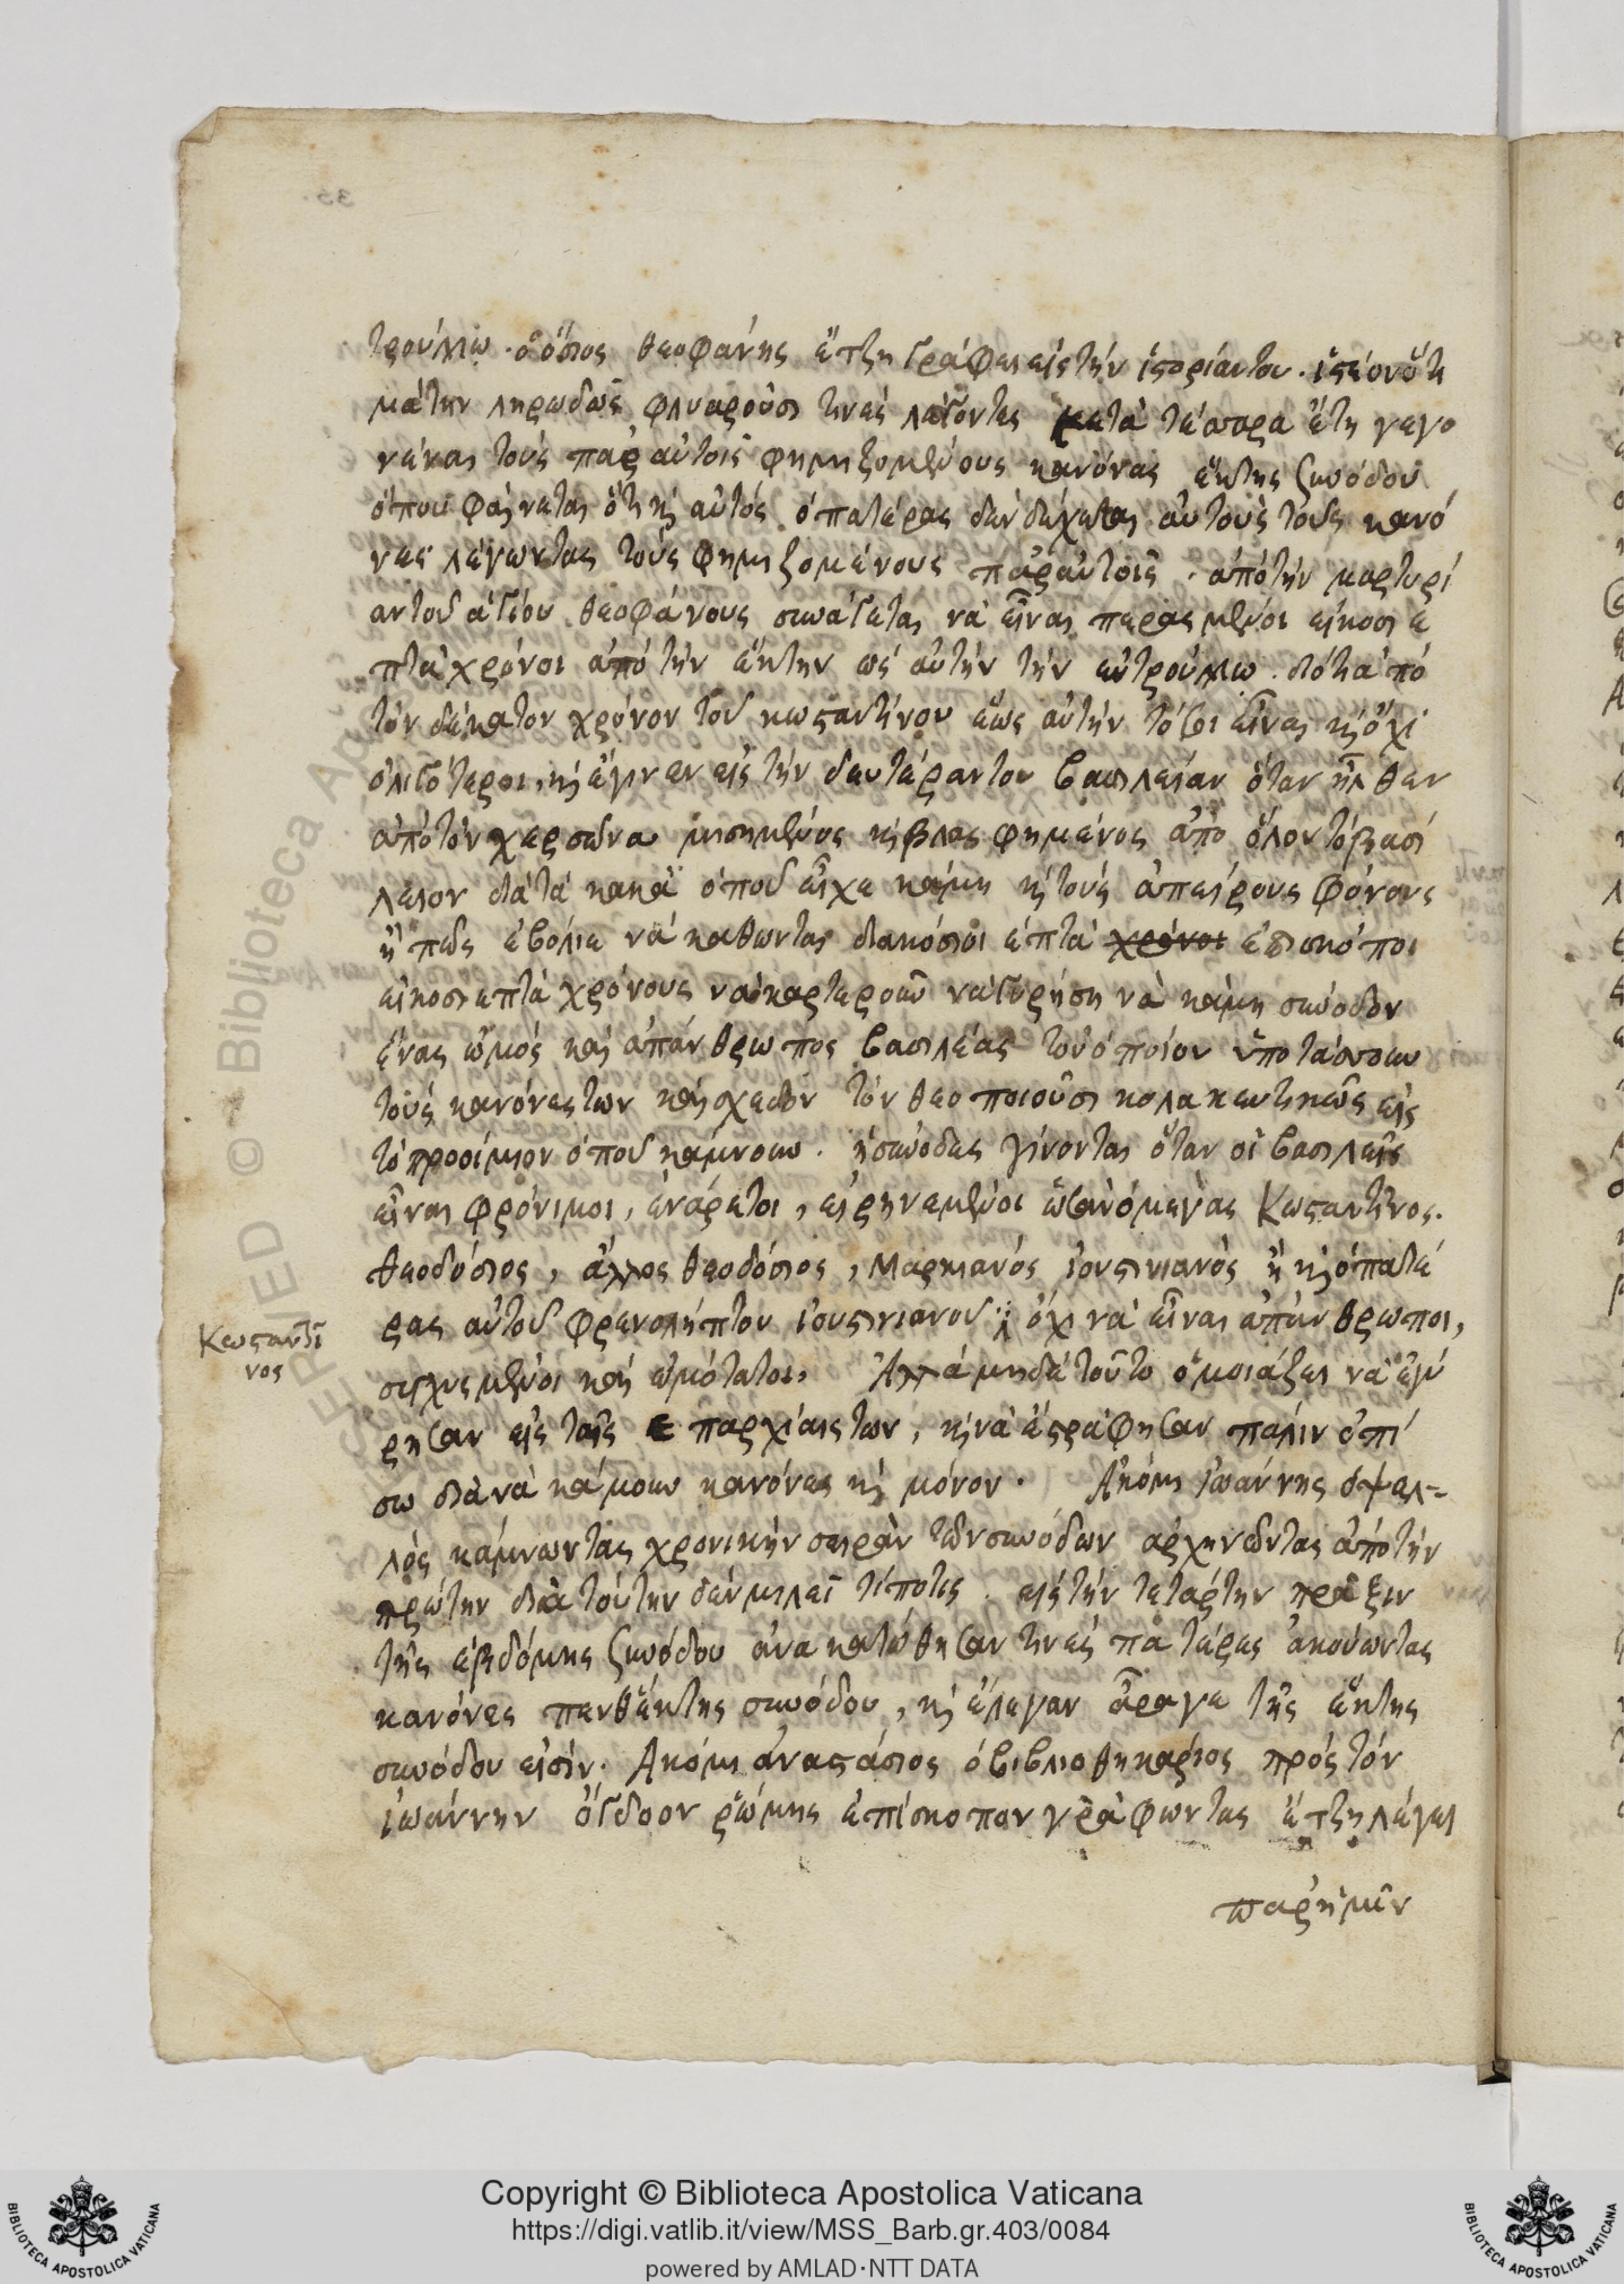 τρούλλω. ὁ ὅσιος θεοφάνης ἔτζη γράφει εἰς τὴν ἱστορίαντου. ἰστέον ὅτι
μάτην ληρωδῶς φλυαροῦσι τινὲς λέγοντες μετὰ τέσσαρα ἔτη γεγο
νέναι τοὺς παρ αὐτοῖς φημιζομένους κανόνας ἕκτης συνόδου
ὁπου φαίνεται ὅτι κὶ αὐτὸς ὁ πατέρας δὲν δέχεται αὐτοὺς τοὺς κανό
νες λέγωντας τοὺς φημιζομένους παρ αὐτοῖς. ἀπὸ τὴν μαρτυρί
αντοῦ ἁγίου θεοφάνους συνάγεται νὰ εἶναι περασμένοι εἴκοσι ἑ
πτὰ χρόνοι ἀπὸ τὴν ἕκτην ὡς αὐτὴν τὴν ἐντρούλλω. διότι ἀπὸ
τὸν δέκατον χρόνον τοῦ κωσταντίνου ἕως αὐτὴν τόσοι εἶναι κὶ ὄχι
ὀλιγότεροι, κὶ ἔγινεν εἰς τὴν δευτέραντου βασιλείαν ὅταν ἦλθεν
ἀπὸ τὸν χερσῶνα μισημένος κὶ βλασφημένος ἀπὸ ὅλον τὸ βασί
λειον διὰ τὰ κακὰ ὁποῦ εἶχε κάμη κὶ τοὺς ἀπείρους φόνους
ἢ πῶς ἐβόλιε νὰ καθωνται διακόσιοι ἑπτὰ χρόνοι ἐπισκόποι
εἰκοσιεπτὰ χρόνους νὰ καρτεροῦν νὰ γυρήση νὰ κάμη σύνοδον
ἕνας ὠμὸς καὶ ἀπάνθρωπος βασιλέας τοῦ ὁποίου ὑποτάσσουν
τοὺς κανόνεςτων καὶ σχεδὸν τὸν θεοποιοῦσι κολακευτικῶς εἰς
τὸ προοίμιον ὁποῦ κάμνουν. ἡ σύνοδες γίνονται ὅταν οἱ βασιλεῖς
εἶναι φρόνιμοι, ἐνάρετοι, εἰρηνεμένοι ὡσὰν ὁ μέγας Κωσταντῖνος.
θεοδόσιος, ἄλλος θεοδόσιος, Μαρκιανὸς ἰουστινιανὸς ἢ κὶ ὁ πατέ
ρας αὐτοῦ φρενολήπτου ἰουστινιανοῦ ὄχι νὰ εἶναι ἀπάνθρωποι,
Κωσταντῖ
νος
συγχυσμένοι καὶ ὠμότατοι. Ἀλλὰ μηδὲ τοῦτο ὁμοιάζει νὰ ἐγύ
ρησαν εἰς ταῖς ἐπαρχίαιςτων, κὶ νὰ ἐστράφησαν πάλιν ὀπί
σω διὰ νὰ κάμουν κανόνες κὶ μόνον. Ἀκόμι ἰωάννης ὁ ψελ-
λὸς κάμνωντας χρονικὴν σειρὰν τῶν συνόδων ἀρχηνῶντας ἀπὸ τὴν
πρώτην διὰ τούτην δὲν μιλεῖ τίποτις. εἰς τὴν τετάρτην πρᾶξιν
τῆς ἑβδόμης συνόδου ἀνακατώθησαν τινὲς πατέρες ἀκούωντας
κανόνες πενθέκτης συνόδου, κὶ ἔλεγαν ἄραγε τῆς ἕκτης
συνόδου εἰσίν. Ἀκόμι ἀναστάσιος ὁ βιβλιοθηκάριος πρὸς τὸν
ἰωάννην ὄγδοον ῥώμης ἐπίσκοπον γράφωντας ἔτζη λέγει
παρ ἡμῖν
Copyright © Biblioteca Apostolica Vaticana
https://digi.vatlib.it/view/MSS_Barb.gr.403/0084
powered by AMLAD·NTT DATA